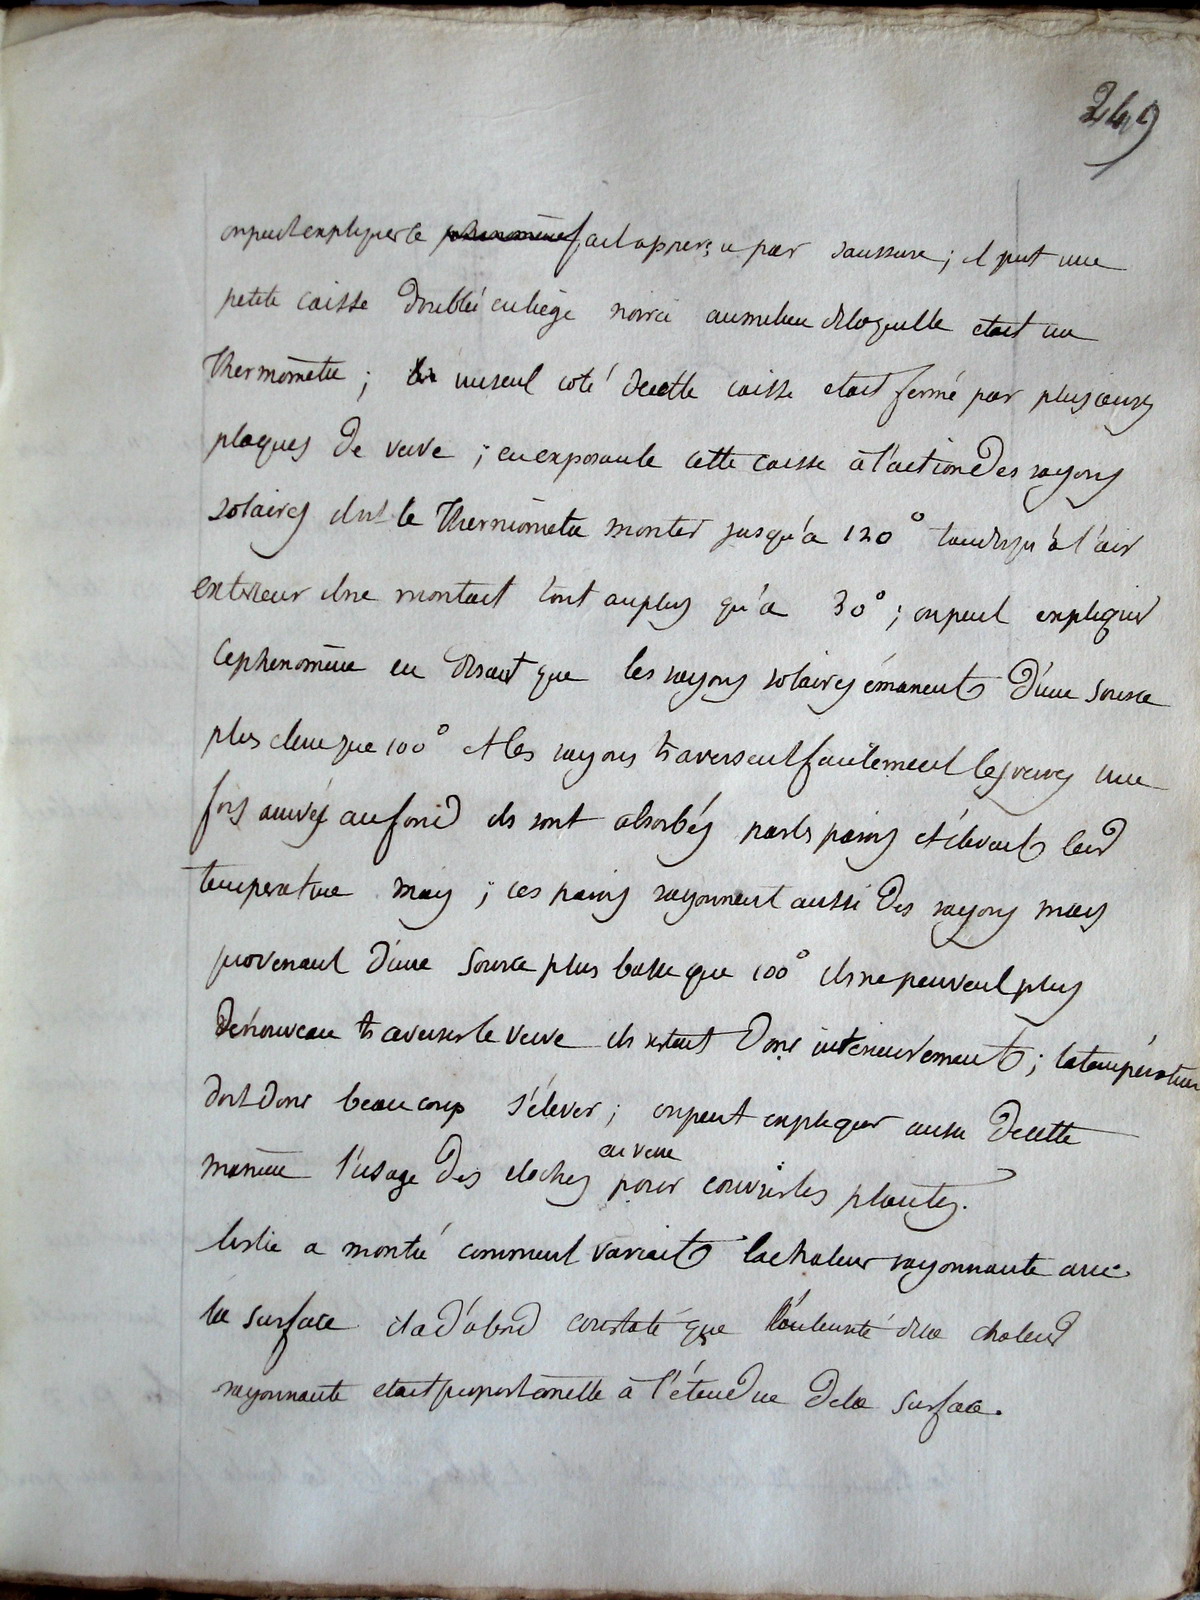 249
on peut expliquer le phenomène fait apperçu par saussure ; il prit une
petite caisse doublée en liège noirci au milieu de laquelle etait un
thermomètre ; un seul coté de cette caisse etait fermé par plusieurs
plaques de verre ; en exposant cette caisse à l'action des rayons
solaires il vit le thermomètre monter jusqu'à 120° tandis qu'à l'air
exterieur il ne montait tout au plus qu'à 30° ; on peut expliquer
ce phenomène en disant que les rayons solaires émanent d'une source
plus elevée que 100° et les rayons traversent facilement les verres une
fois arrivés au fond ils sont absorbés par les parois et élevent leur
temperature mais ; ces parois rayonnent aussi des rayons mais
provenant d'une source plus basse que 100° ils ne peuvent plus
de nouveau traverser le verre ils restent donc interieurement ; la température
doit donc beaucoup s'élever ; on peut expliquer aussi de cette
manière l'usage des cloches en verre pour couvrir les plantes.
leslie a montré comment variait la chaleur rayonnante avec
la surface il a d'abord constaté que l'intensité de la chaleur
rayonnante etait proportionnelle à l'étendue de la surface.